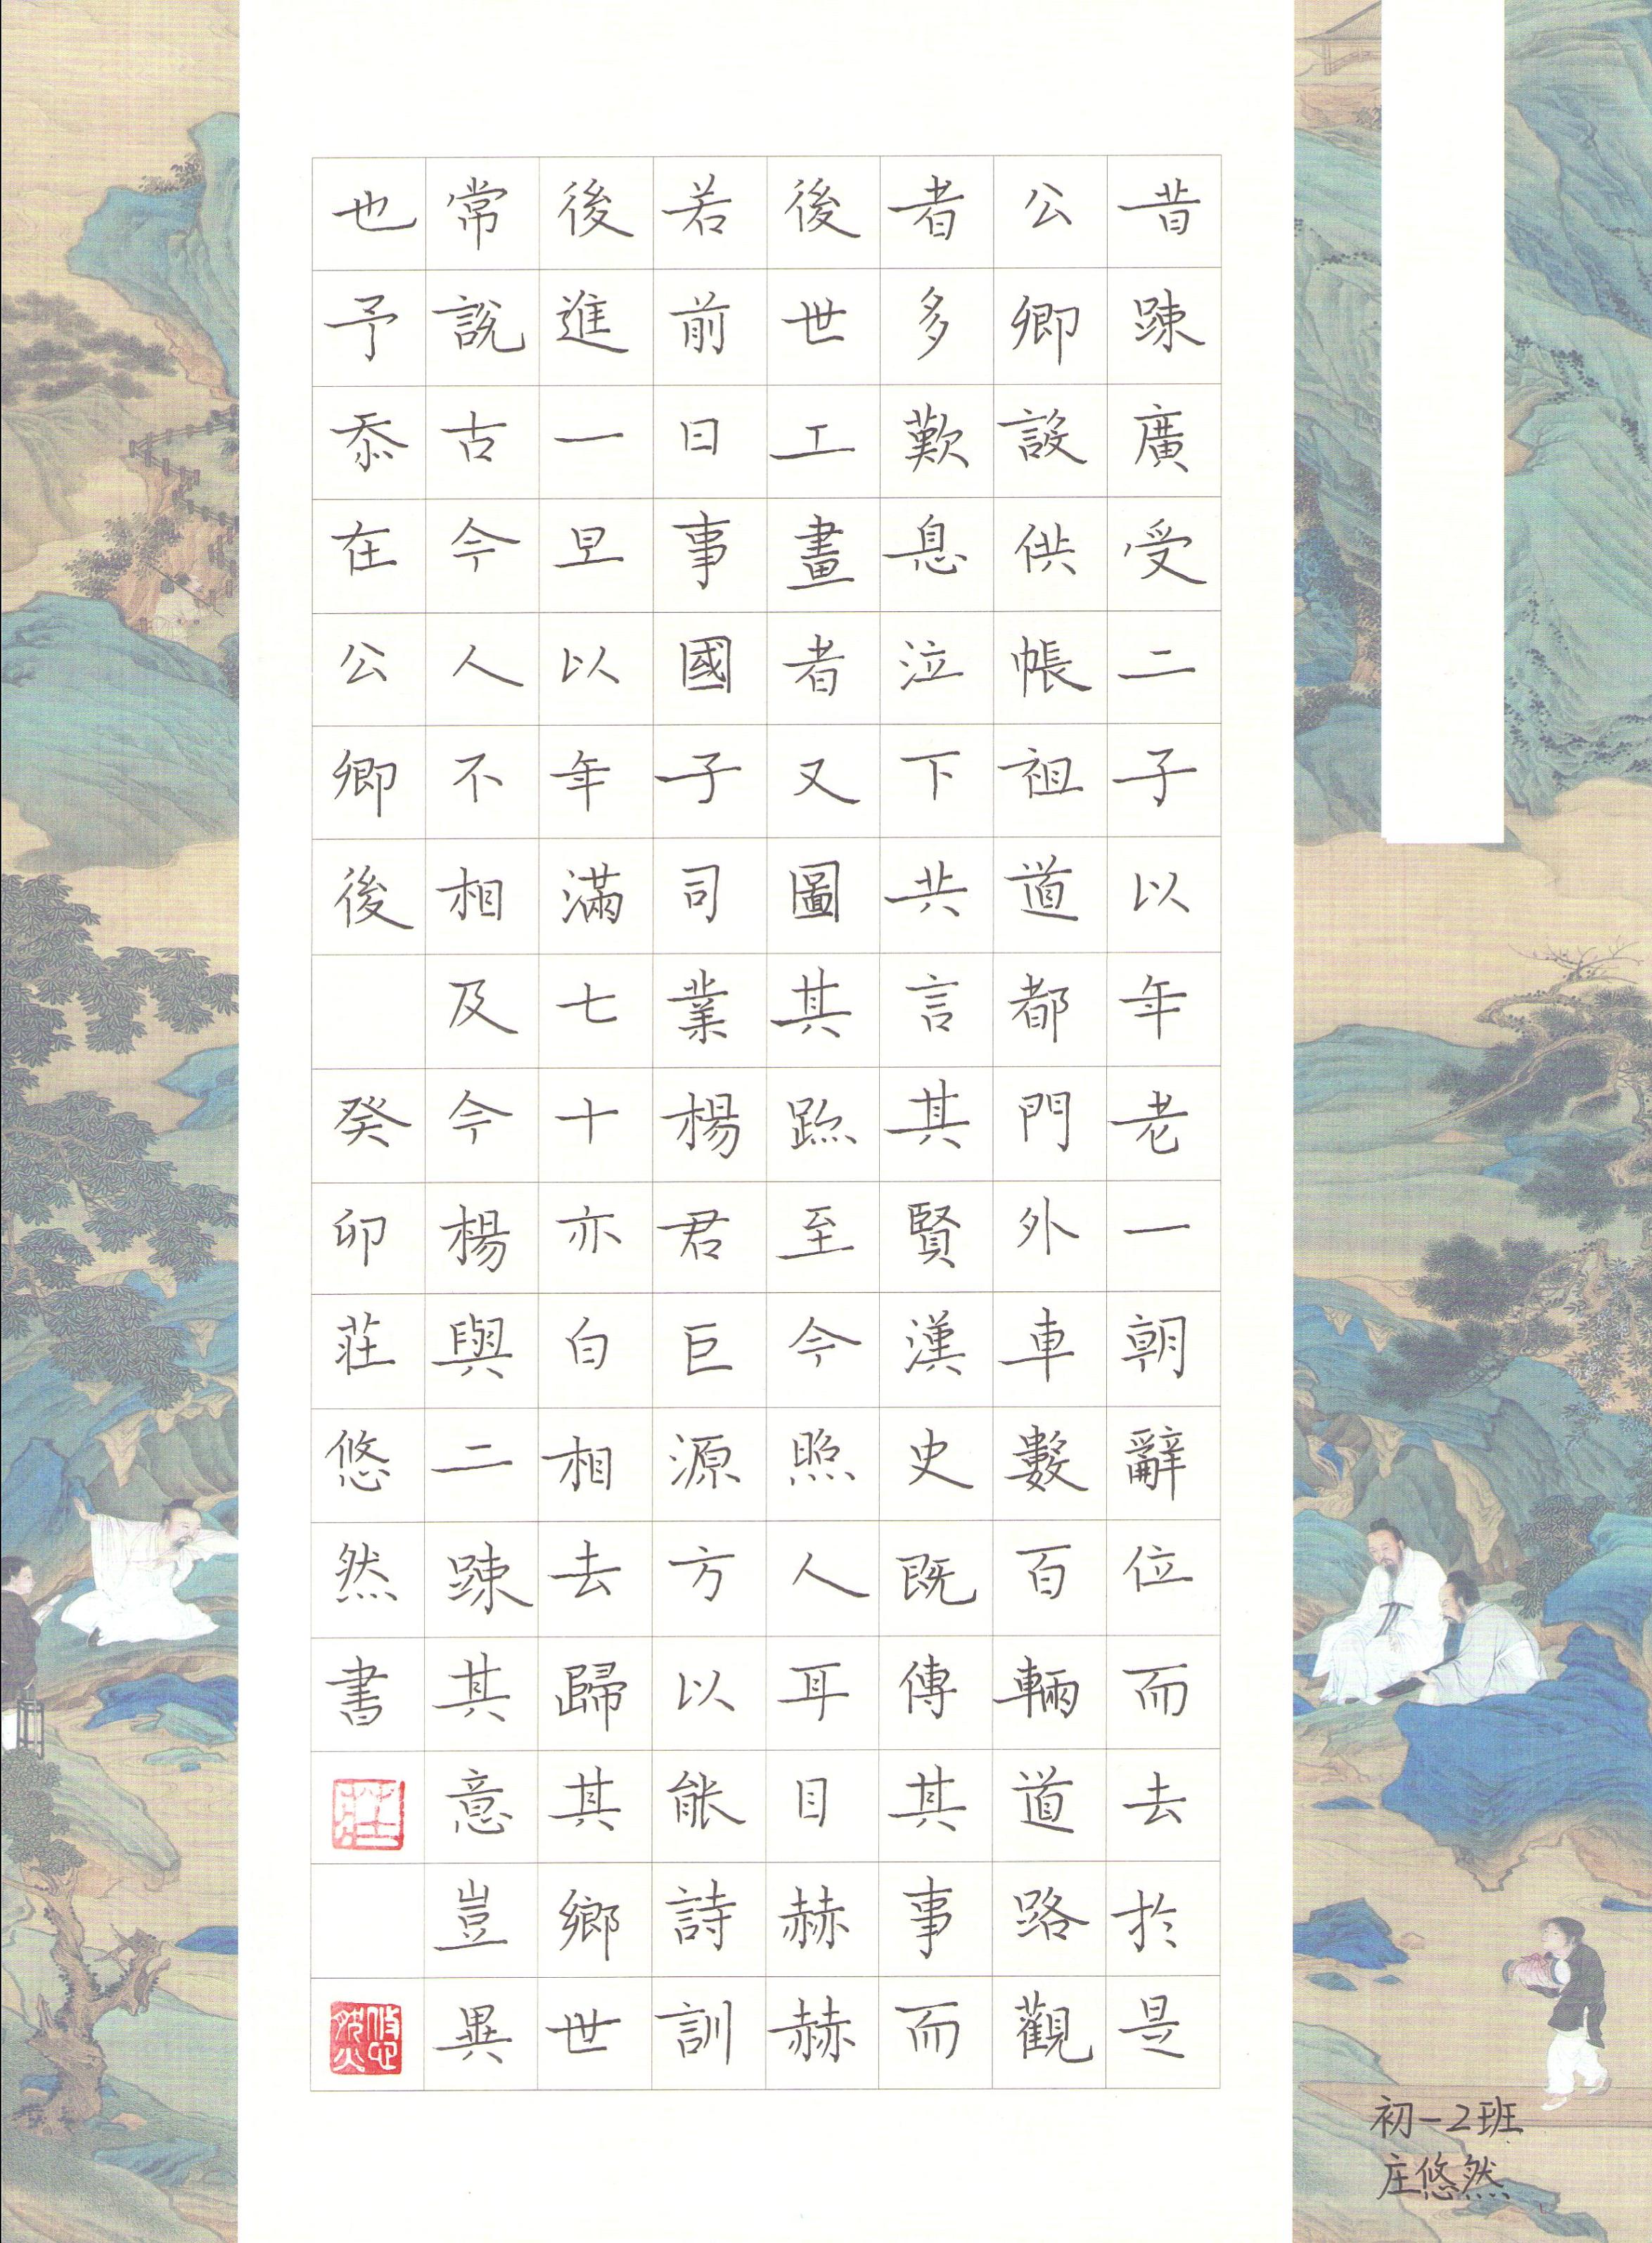 昔踈廣受二子以年老一朝辭位而去於是
公卿設供帳祖道都門外車數百輛道路觀
者多歎息泣下共言其賢漢史既傳其事而
後世工畫者又圖其跡至今照人耳目赫赫
若前日事國子司業楊君巨源方以能詩訓
後進一旦以年滿七十亦白相去歸其鄉世
常説古今人不相及今楊與二踈其意豈異
也予忝在公卿後 癸卯莊悠然書
莊
悠然
初一2班
庄悠然